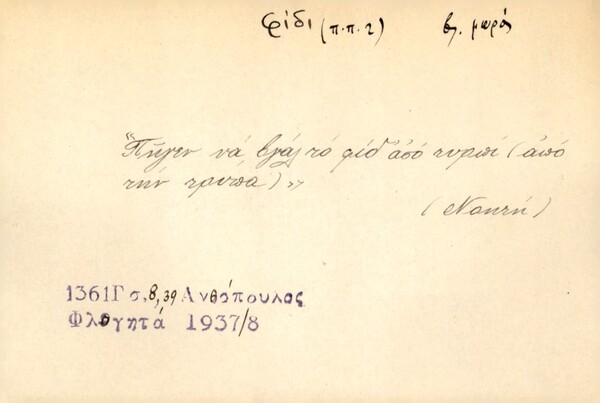 φίδι (π.π. 2) βλ. μωρός
"Πῆγεν νά βγάλ τό φίδ' ἀσό τυρπί (ἀπό
τήν τρυπα)"
1361Γ σ, 8,39 Ανθόπουλος
Φλογητά 1937/8